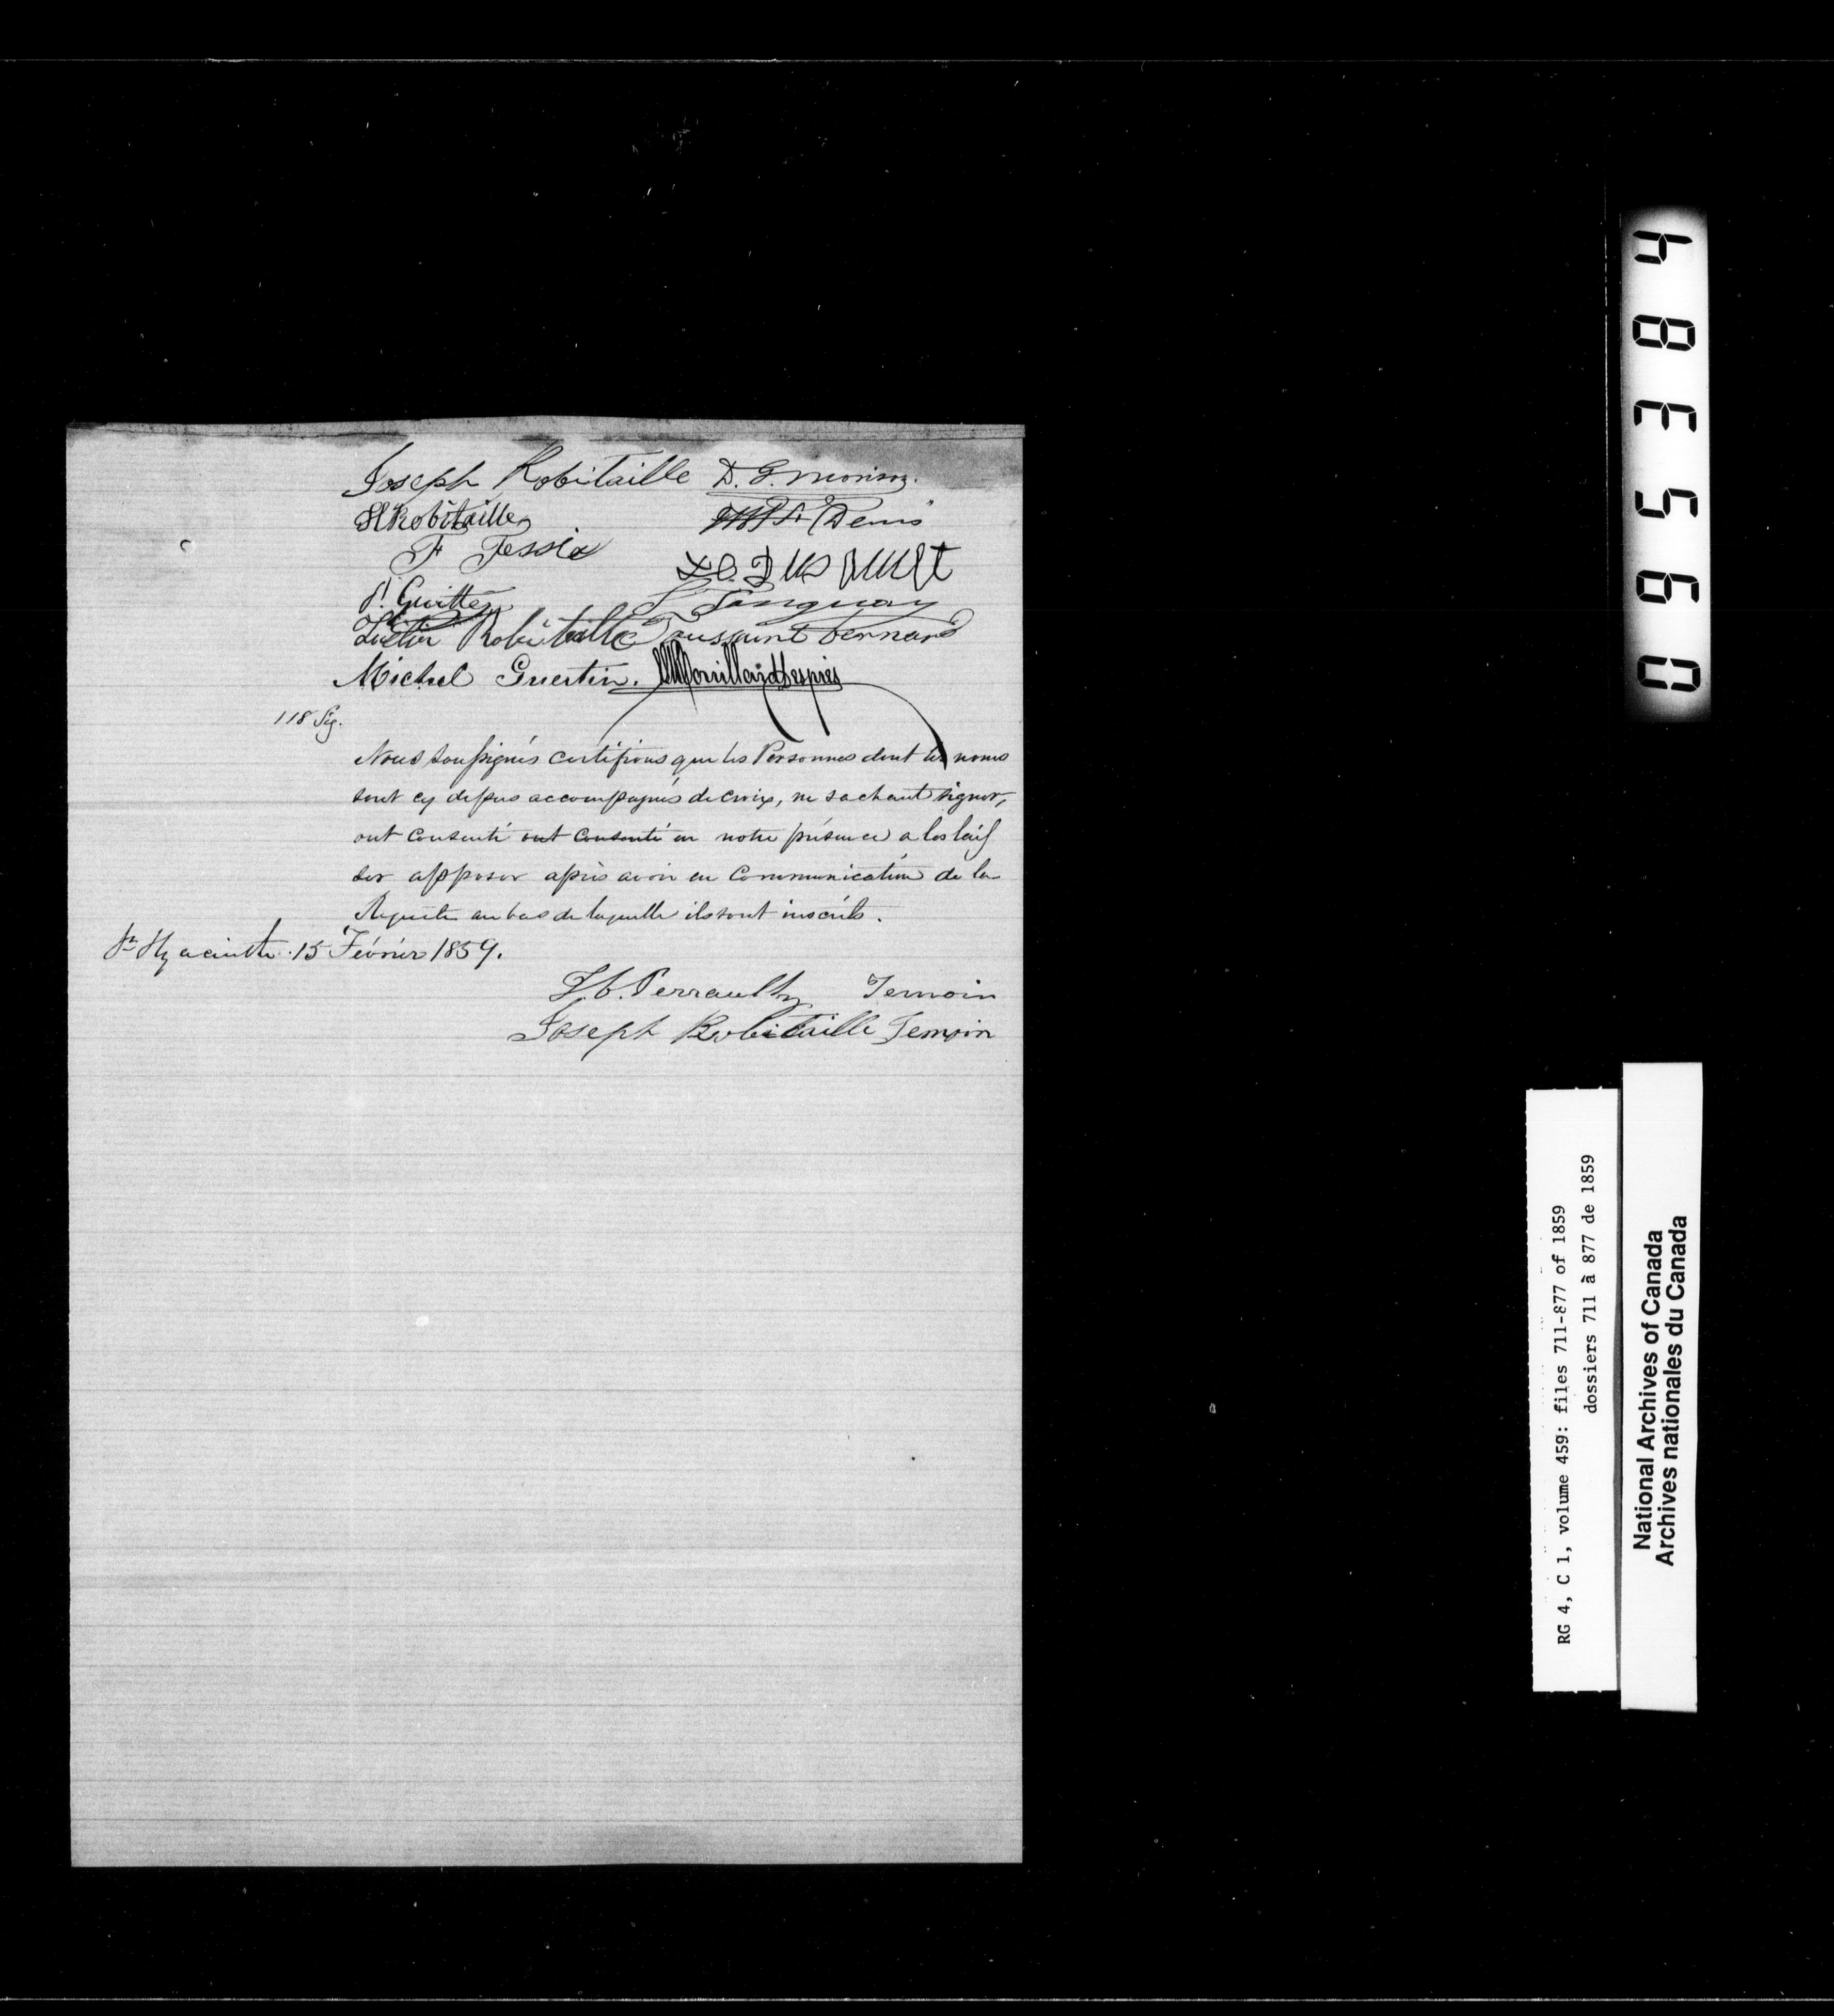 Joseph Robitaille D. G. Morison.
H Robitaille St Denis
F Tessier
L. O. Dusault
P. Guitté
S Tanguay
Robitaille Toussaint bernard
Michel Guertin. Morillard Després
118 Sig.
Nous soussignés certifions que les Personnes dont les noms
sont cy dessus accompagnés de croix, ne sachant signer,
ont consenti ont consenti en notre présence a les lais
ser apposer après avoir eu Communication de la
Requête au bas de laquelle ils sont inscrits.
St Hyacinthe 15 Février 1859.
Perrault Temoin
Joseph Robitaille Temoin
483560
RG 4, C 1, volume 459: files 711-877 of 1859
dossiers 711 à 877 de 1859
National Archives of Canada
Archives nationales du Canada